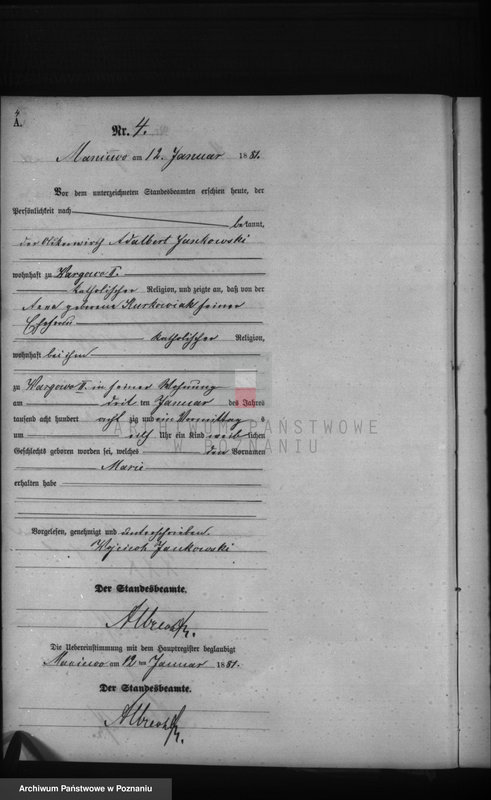 4
A.
Nr. 4.
Maniewo am 12. Januar 1881.
Vor dem unterzeichneten Standesbeamten erschien heute, der
Persönlichkeit nach
bekannt,
der Adalbert Jankowski
wohnhaft zu Wargowo II.
katholischer Religion, und zeigte an, daß von der
Anna geborene Kurkowiak seiner
Ehefrau
katholischer Religion,
wohnhaft bei ihm
zu Wargowo II. in seiner Wohnung
am drit ten Januar des Jahres
tausend acht hundert acht zig und ein Vormittag s
um elf Uhr ein Kind weib lichen
Geschlechts geboren worden sei, welches den Vornamen
Marie
erhalten habe
Vorgelesen, genehmigt und unterschrieben
Wojciech Jankowski
Der Standesbeamte.
Albrecht
Die Uebereinstimmung mit dem Hauptregister beglaubigt
Maniewo am 12 ten Januar 1881.
Der Standesbeamte.
Albrecht
ARCHIWUM PAŃSTWOWE
W POZNANIU
Archiwum Państwowe w Poznaniu